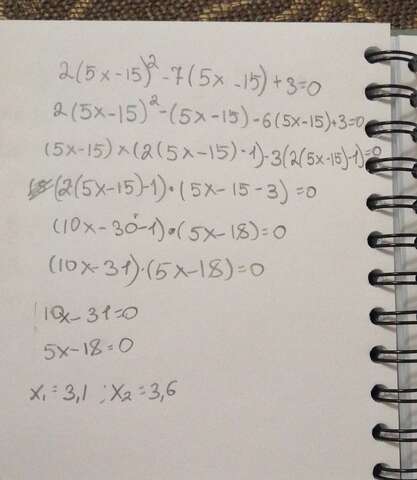 2(5x-15)²-7(5x-15)+3=0
2(5x-15)²-(5x-15)-6(5x-15)+3=0
(5x-15)×(2(5x-15)-1)-3(2(5x-15)-1)=0
(2(5x-15)-1)·(5x-15-3)=0
(10x-30-1)·(5x-18)=0
(10x-31)·(5x-18)=0
10x-31=0
5x-18=0
x₁=3,1 ; x₂=3,6